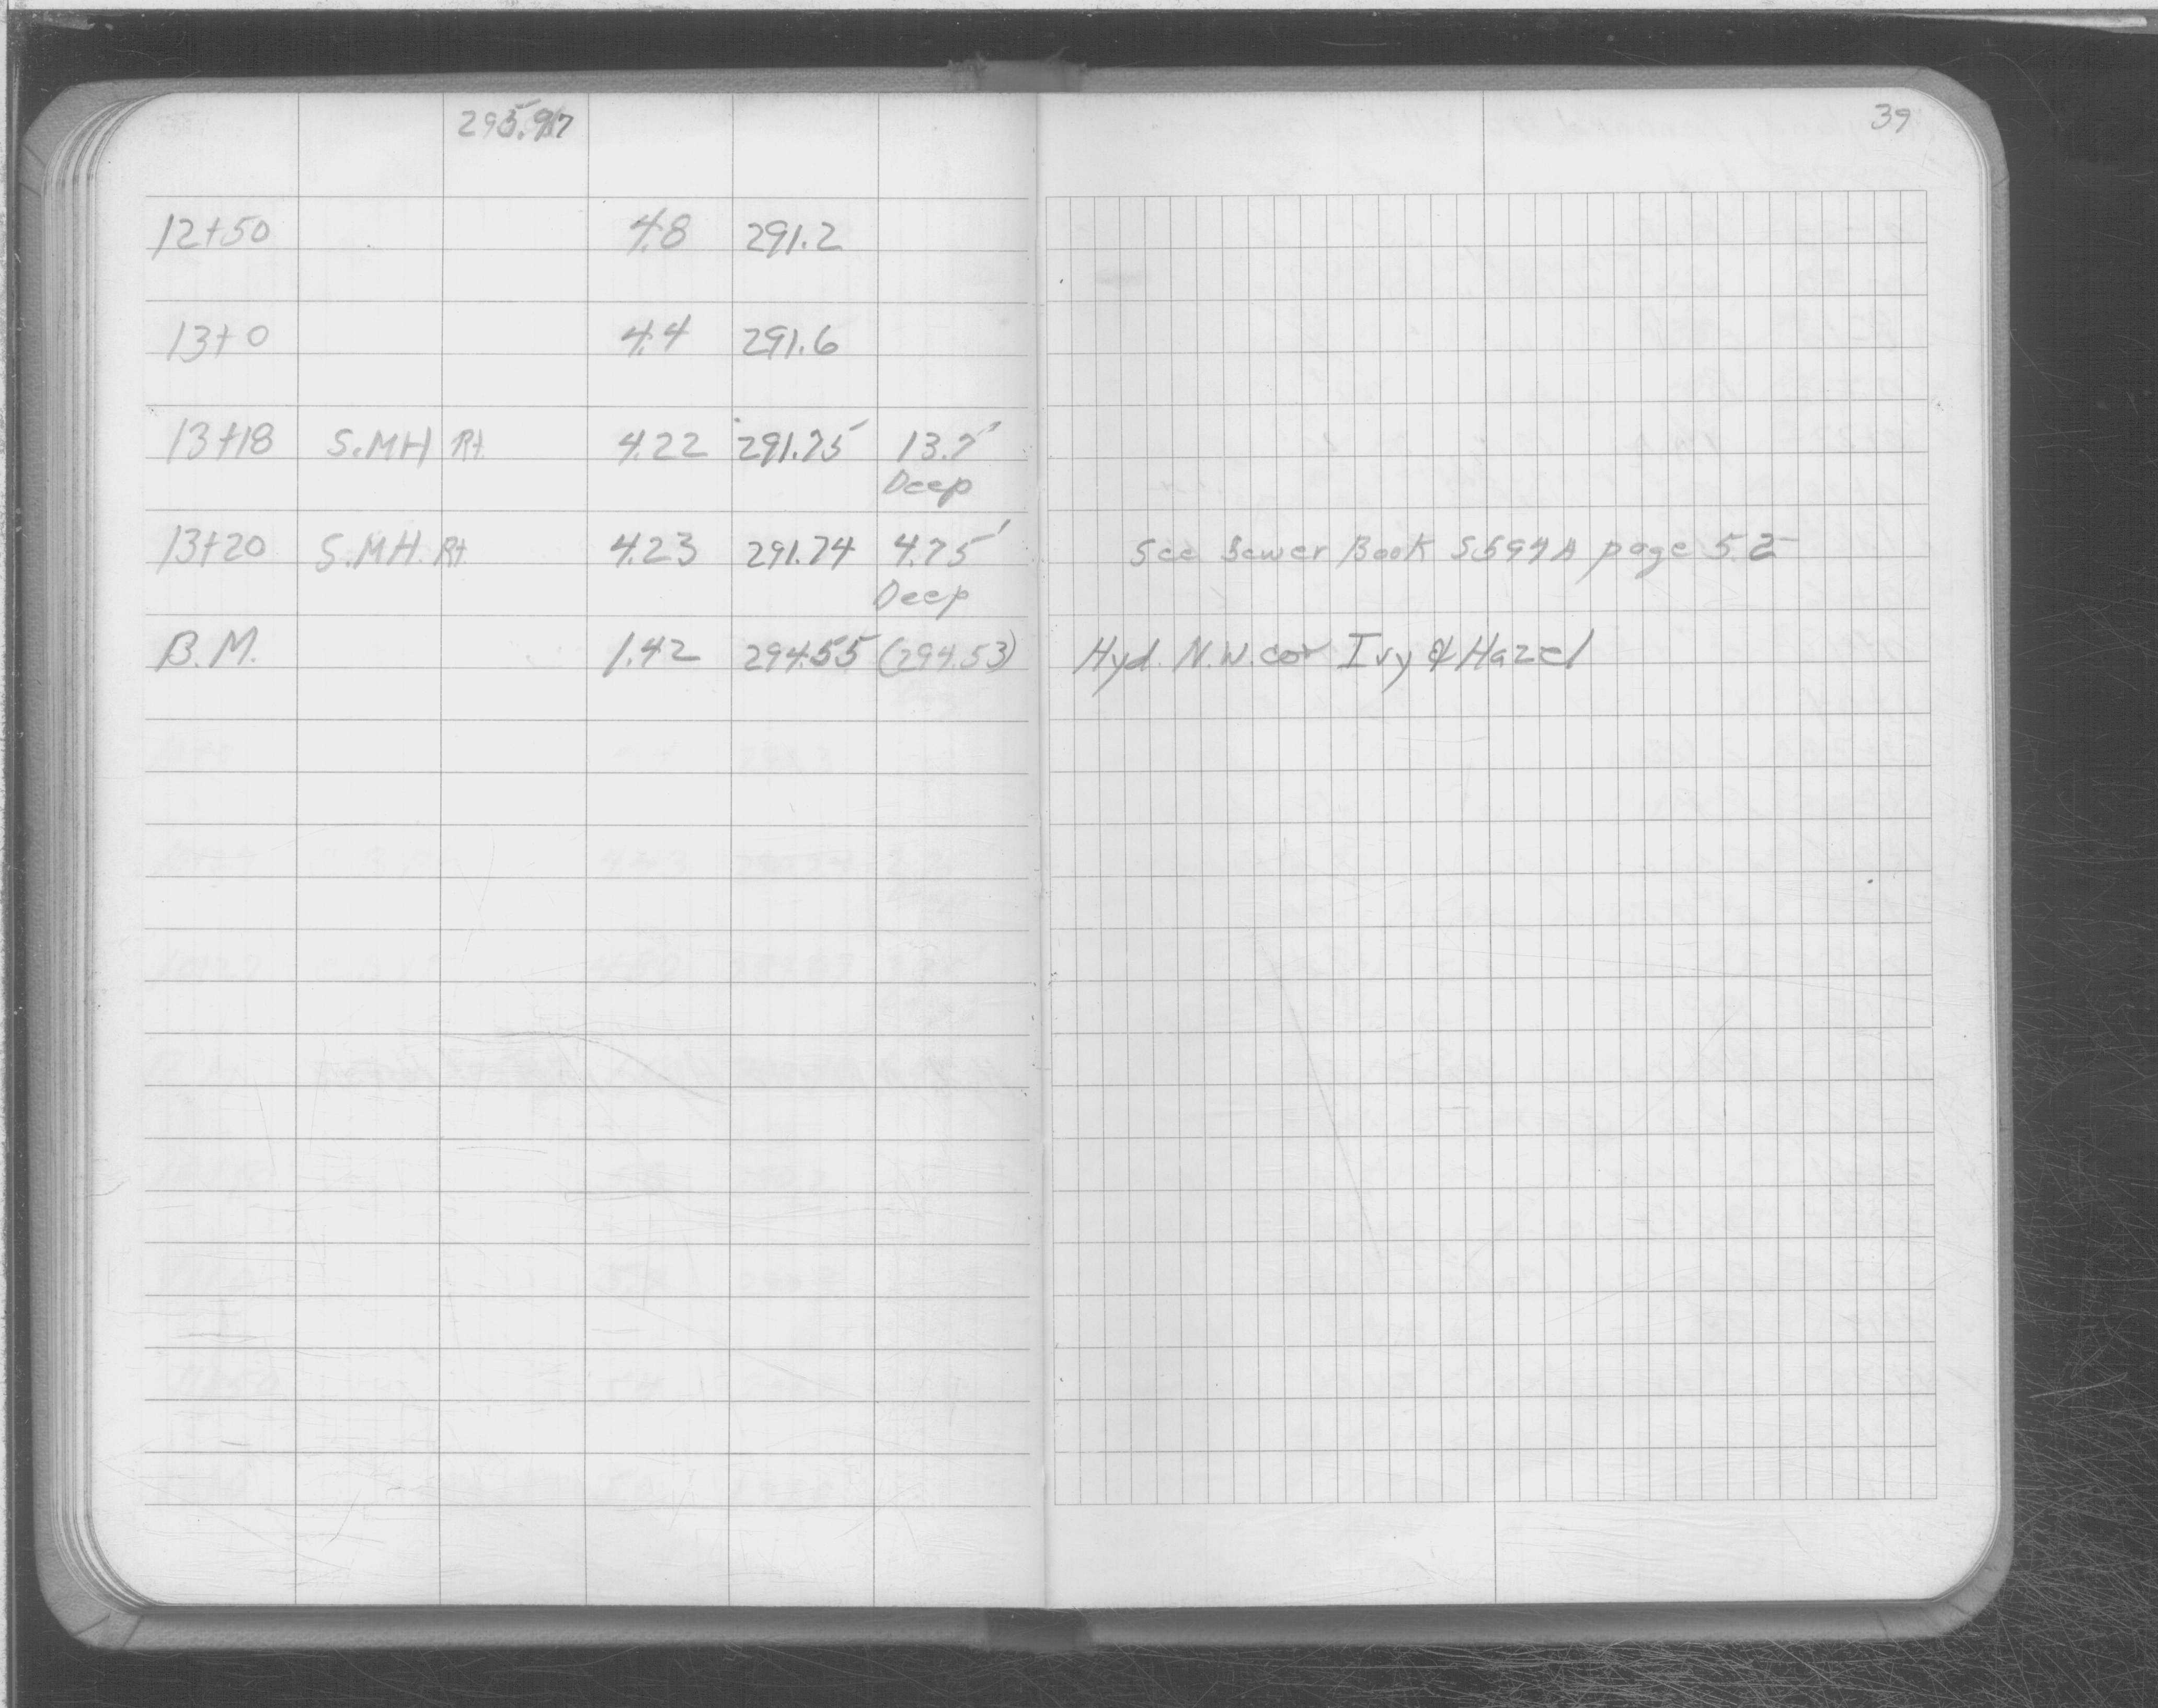 295.97
39
12+50 4.8 291.2
13+0 4.4 291.6
13+18 S.MH Rt 4.22 291.75 13.7'
Deep
13+20 S.M.H. Rt. 4.23 291.74 4.75' See Sewer Book page 52
Deep
B.M. 1.42 294.55 (294.53) Hyd. N.W. cor Ivy & Hazel